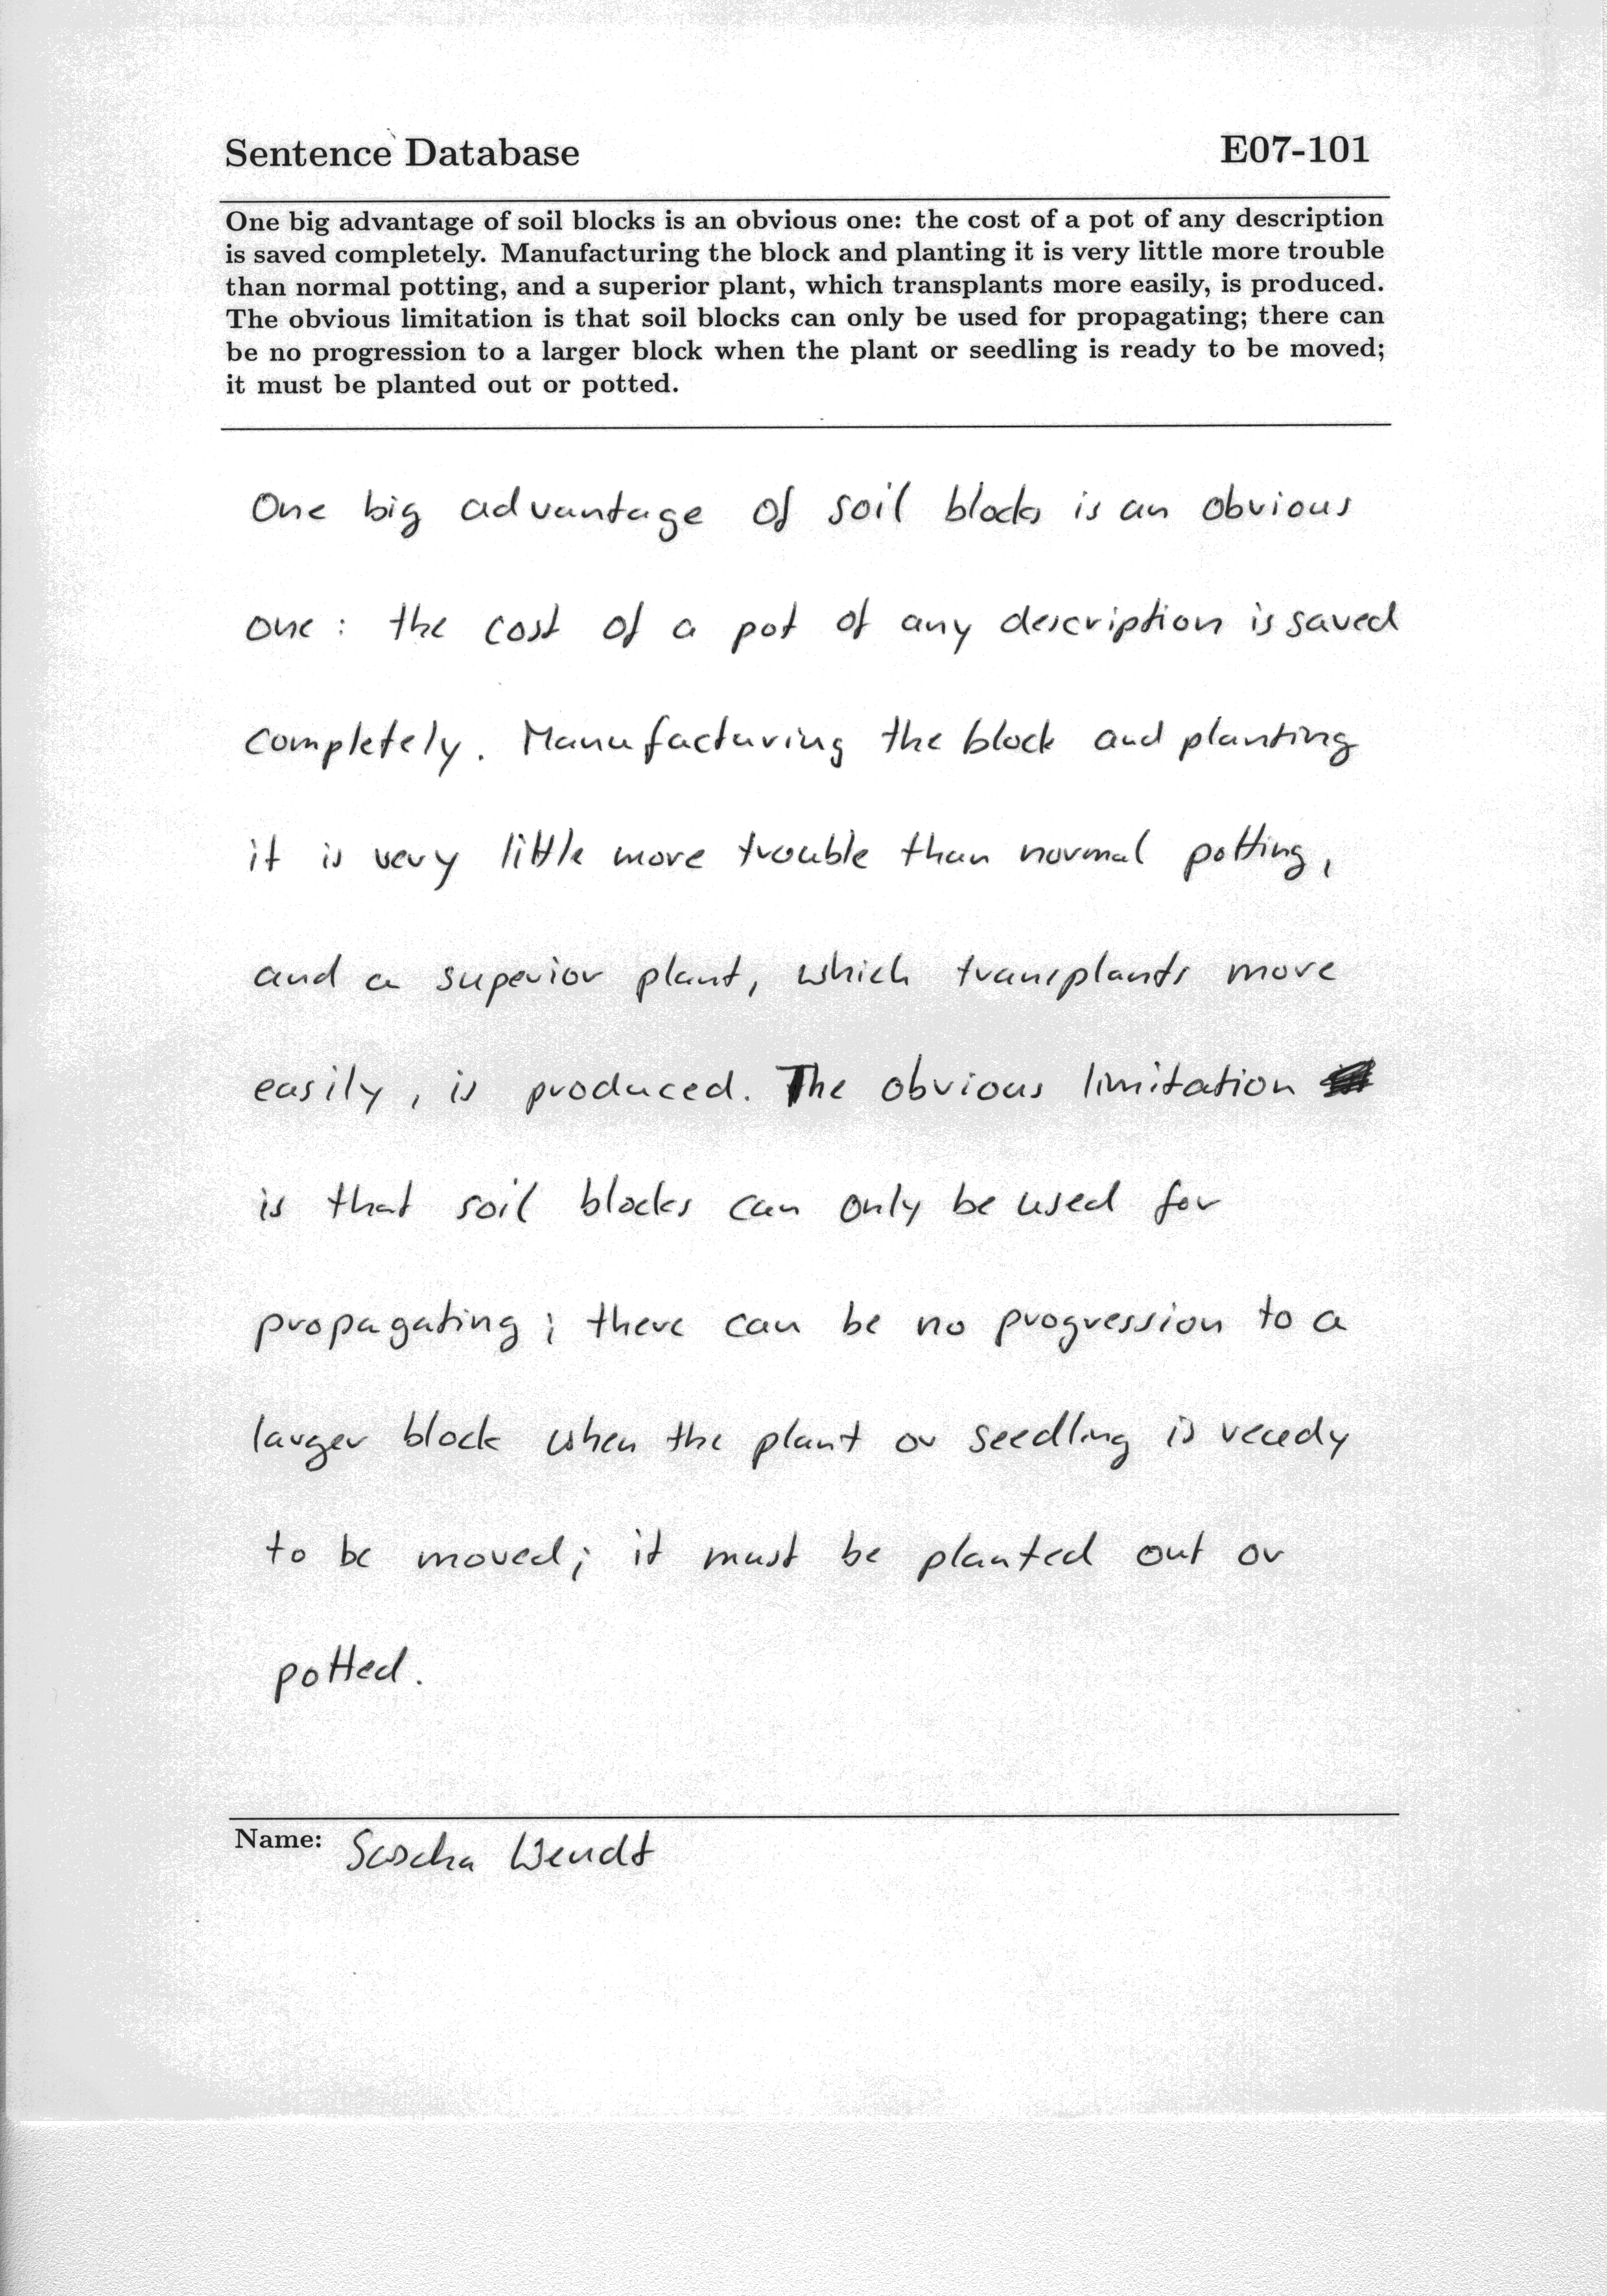 Sentence Database E07-101
One big advantage of soil blocks is an obvious one: the cost of a pot of any description
is saved completely. Manufacturing the block and planting it is very little more trouble
than normal potting, and a superior plant, which transplants more easily, is produced.
The obvious limitation is that soil blocks can only be used for propagating; there can
be no progression to a larger block when the plant or seedling is ready to be moved;
it must be planted out or potted.
One big advantage of soil blocks is an obvious
one: the cost of a pot of any description is saved
completely. Manufacturing the block and planting
it is very little more trouble than normal potting,
and a superior plant, which transplants more
easily, is produced. The obvious limitation
is that soil blocks can only be used for
propagating; there can be no progression to a
larger block when the plant or seedling is ready
to be moved; it must be planted out or
potted.
Name: Sascha Wendt